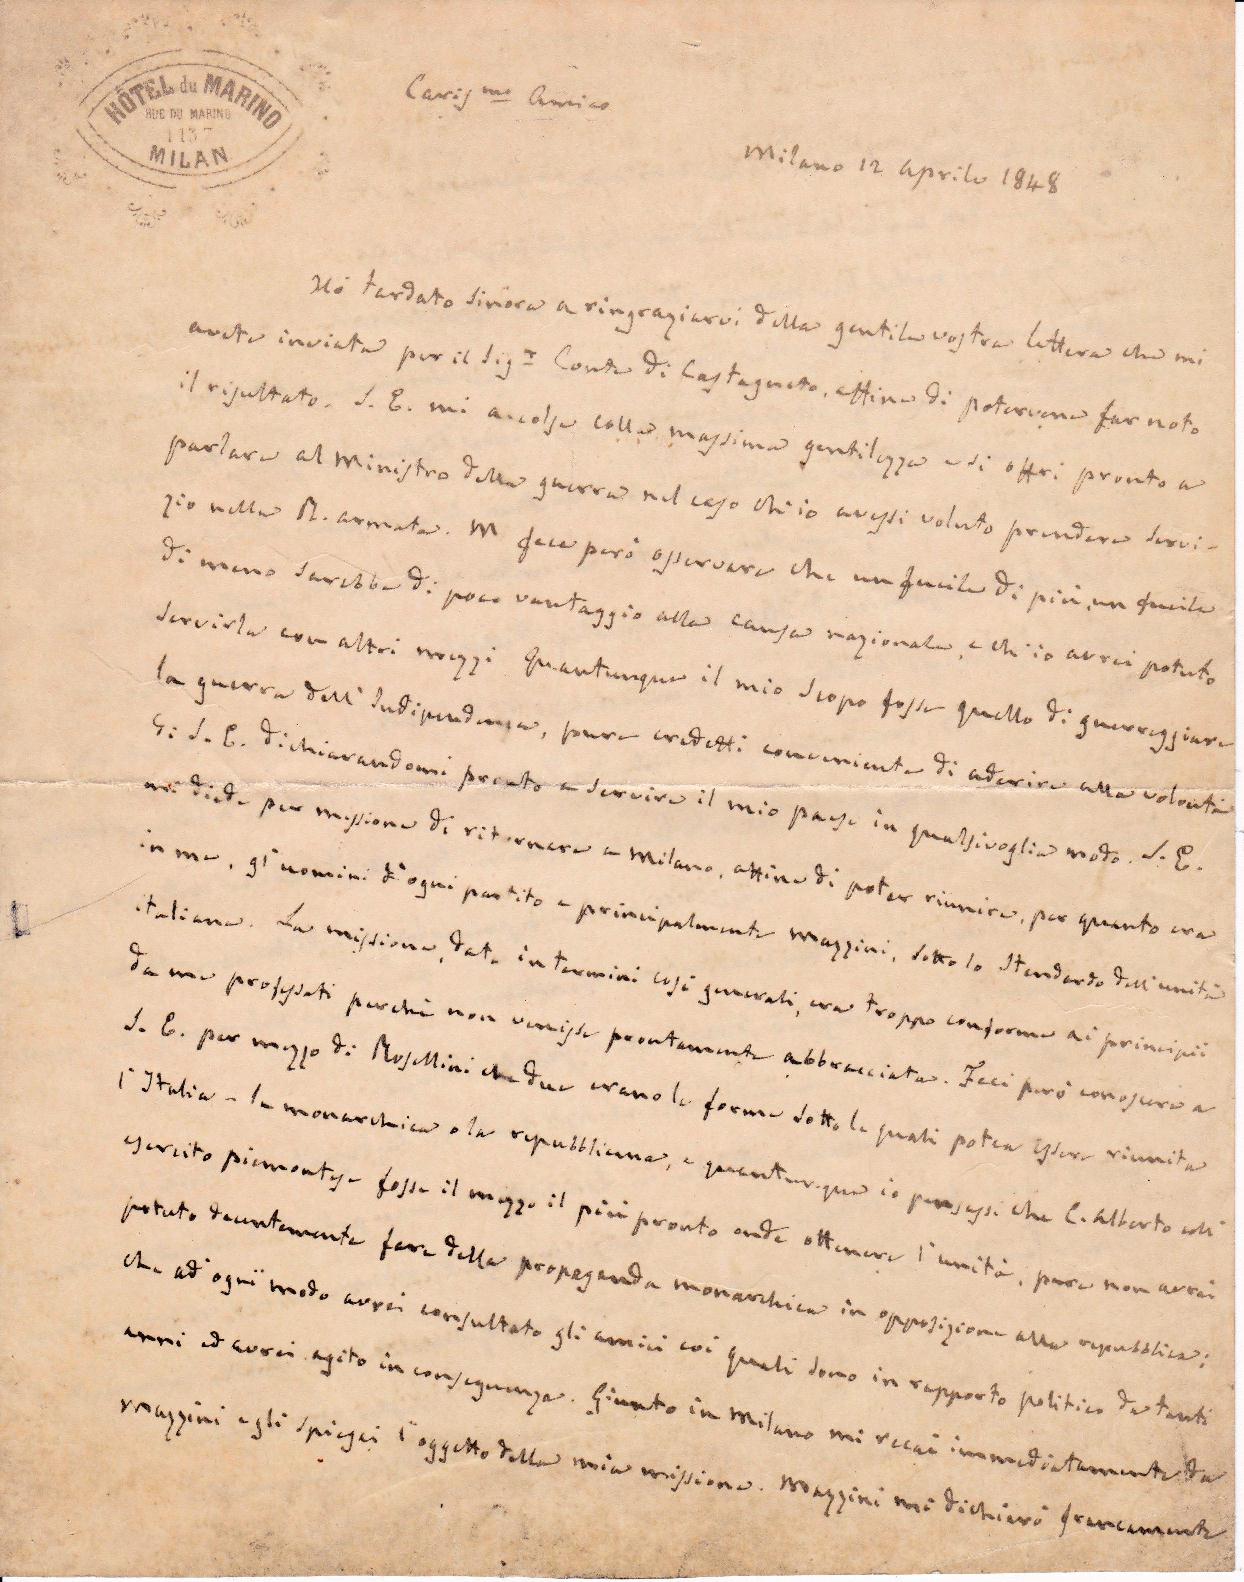 HÔTEL du MARINO
RUE DU MARINO
1137
MILAN
Carisᵐᵒ Amico
Milano 12 aprile 1848
Hó tardato sinora a ringraziarvi della gentile vostra lettera che mi
avete inviata per il Sigʳ Conte di Castagneto, affine di potervene far noto
il risultato. S. E. mi accolse colla massima gentilezza e si offrì pronto a
parlare al Ministro della guerra nel caso ch'io avessi voluto prendere servi-
zio nella R. armata. M fece peró osservare che un fucile di più, un fucile
di meno sarebbe di poco vantaggio alla causa nazionale, e ch'io avrei potuto
servirla con altri mezzi Quantunque il mio scopo fosse quello di guerreggiare
la guerra dell'Indipendenza, pure credetti conveniente di aderire alla volontà
di S. E. dichiarandomi pronto a servire il mio paese in qualsivoglia modo. S. E.
mi diede per missione di ritornare a Milano, affine di poter riunire, per quanto era
in me, gl'uomini d'ogni partito e principalmente Mazzini, sotto lo stendardo dell'unità
italiana. La missione, data in termini così generali, era troppo conforme ai principii
da me professati perchè non venisse prontamente abbracciata. Feci peró conoscere a
S. E. per mezzo di Rosellini che due erano le forme sotto le quali potea essere riunita
l'Italia - la monarchica o la repubblicana, e quantunque io pensassi che C. Alberto coll'
esercito piemontese fosse il mezzo il più pronto onde ottenere l'unitá, pure non avrei
potuto decentemente fare della propaganda monarchica in opposizione alla repubblica;
che ad'ogni modo avrei consultato gli amici coi quali sono in rapporto politico da tanti
anni ed avrei agito in conseguenza. Giunto in Milano mi recai immediatamente da
Mazzini e gli spiegai l'oggetto della mia missione. Mazzini mi dichiaró francamente